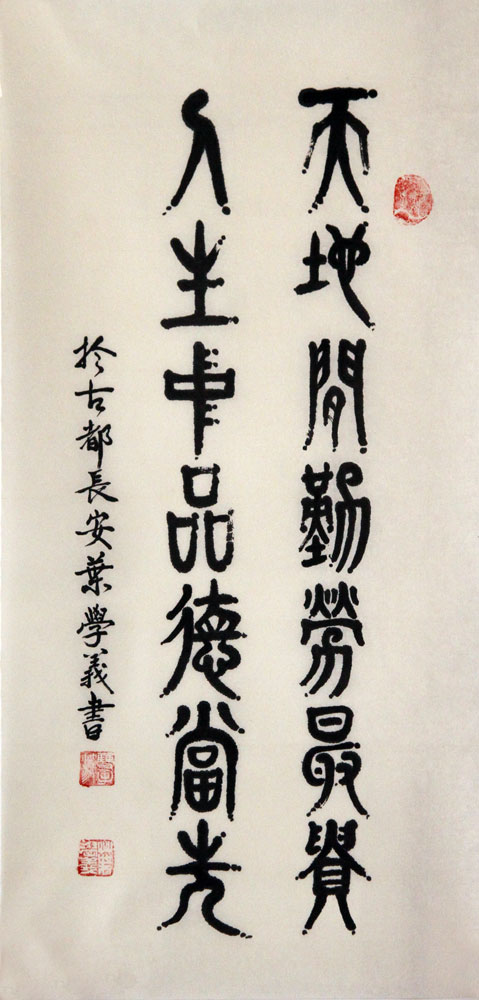 天地間勤勞最貴
人生中品德當先
於古都長安葉學義書